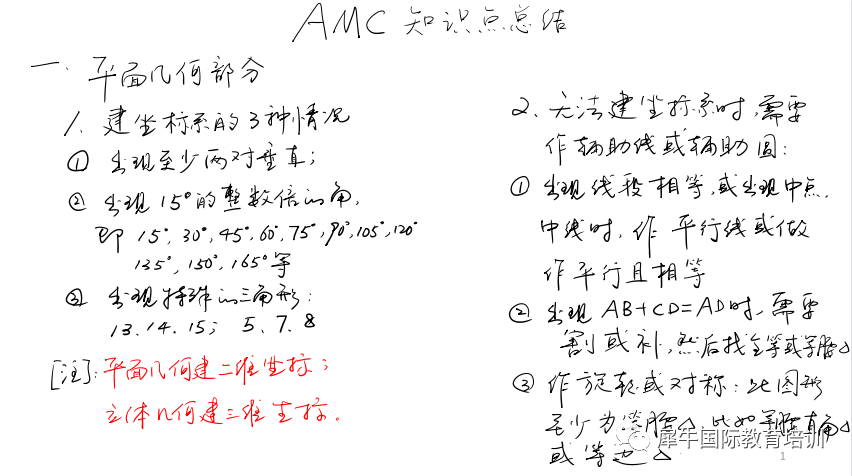 AMC 知识点总结
一. 平面几何部分
1. 建坐标系的3种情况
① 出现至少两对垂直;
② 出现15°的整数倍的角,
即 15°, 30°, 45°, 60°, 75°, 90°, 105°, 120°
135°, 150°, 165°等
③ 出现特殊的三角形:
13.14.15; 5、7、8
[注]: 平面几何建二维坐标;
立体几何建三维坐标。
2、无法建坐标系时,需要
作辅助线或辅助圆:
① 出现线段相等,或出现中点,
中线时,作平行线或做
作平行且相等
② 出现AB+CD=AD时,需要
割或补,然后找全等或等腰△
③ 作旋转或对称:此图形
至少为等腰△,比如等腰直角△
或等边△
犀牛国际教育培训
1